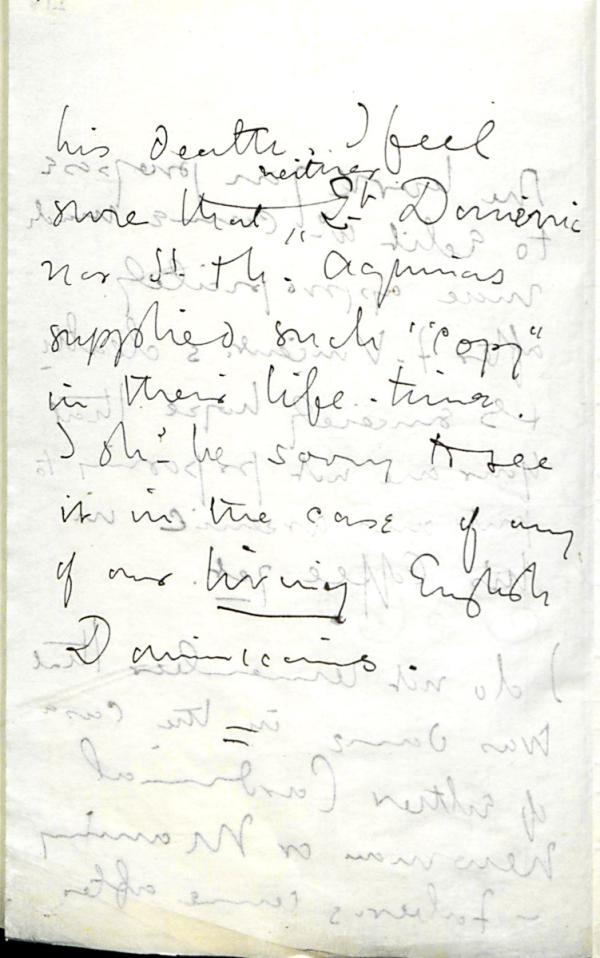 his death. I feel
sure that neither St Dominic
nor St. Th. Aquinas
supplied such "copy"
in their life-time.
I shd be sorry to see
it in the case of any
of our living English
Dominicans